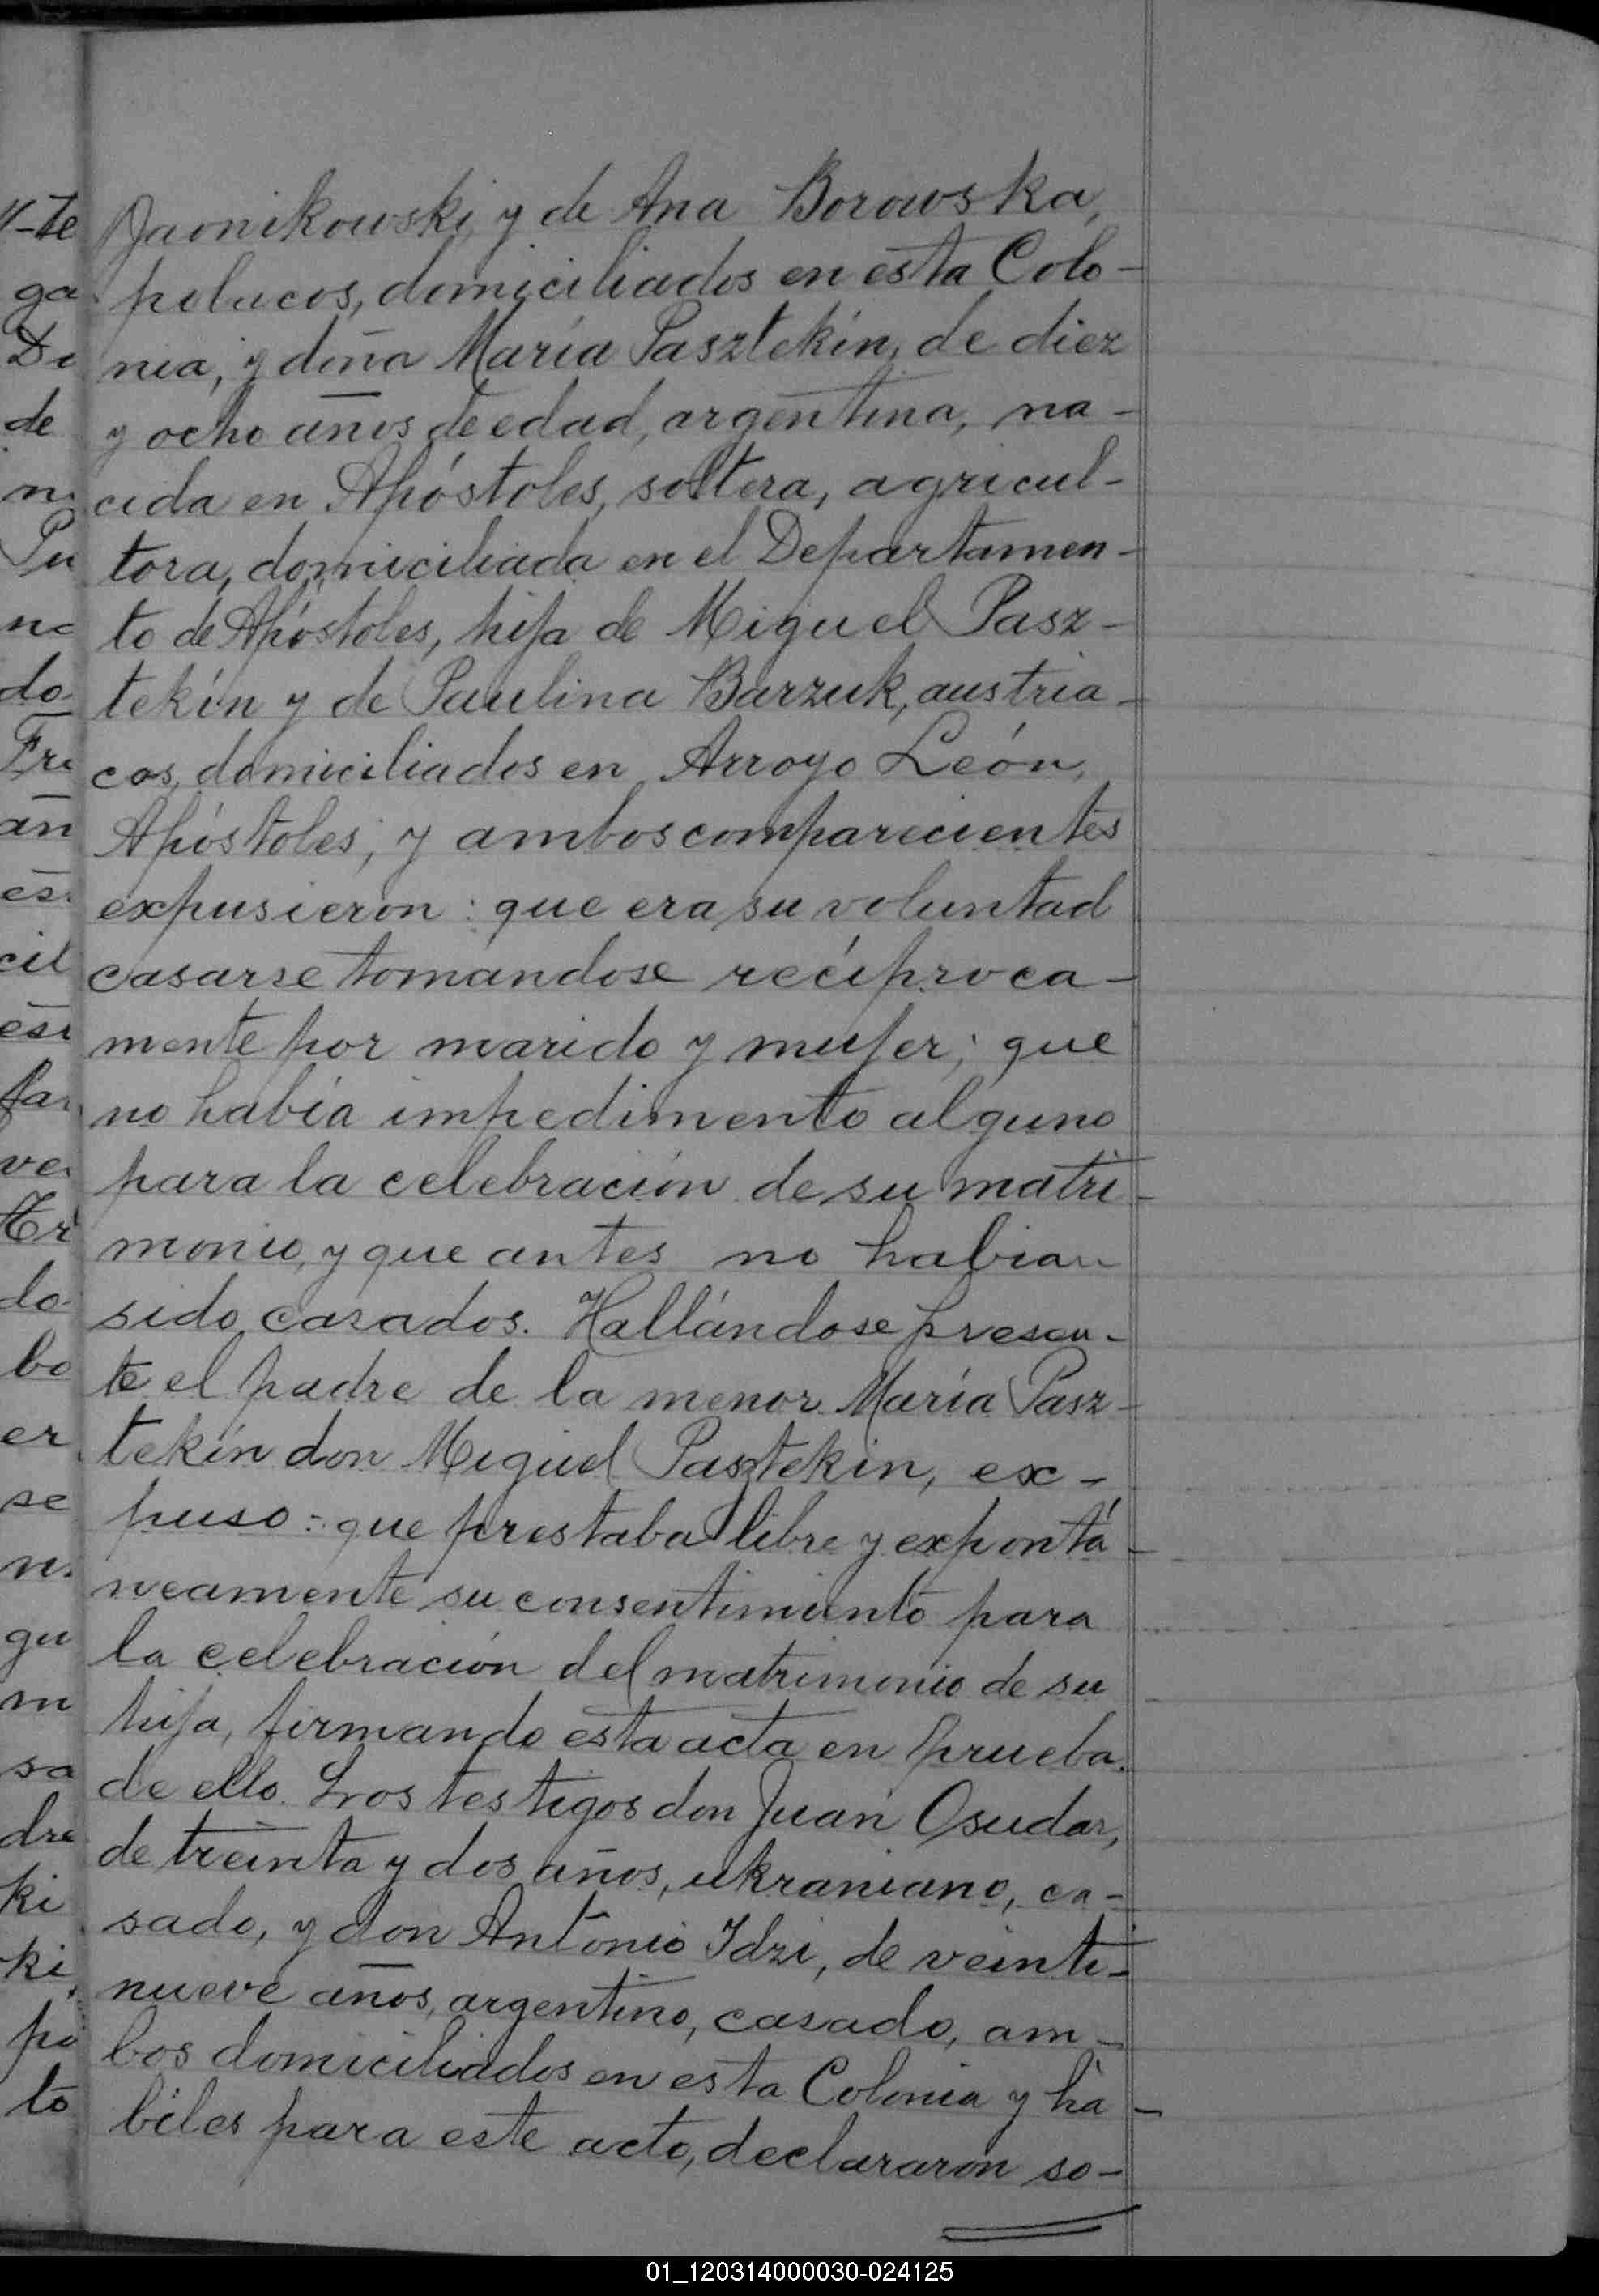 Jaonikowski, y de Ana Borowska,
polacos, domiciliados en esta Colo-
nia, y doña María Pasztekin, de diez
y ocho años de edad, argentina, na-
cida en Apóstoles, soltera, agricul-
tora, domiciliada en el Departamen-
to de Apóstoles, hija de Miguel Pasz-
tekin y de Paulina Barzuk, austria-
cos, domiciliados en Arroyo León,
Apóstoles; y ambos comparecientes
expusieron: que era su voluntad
casarse tomandose recíproca-
mente por marido y mujer; que
no había impedimento alguno
para la celebración de su matri-
monio, y que antes no habian
sido casados. Hallándose presen-
te el padre de la menor María Pasz-
tekin don Miguel Pasztekin, ex-
puso: que prestaba libre y expontá-
neamente su consentimiento para
la celebración del matrimonio de su
hija, firmando esta acta en prueba
de ello. Los testigos don Juan Osudar,
de treinta y dos años, ukraniano, ca-
sado, y don Antonio Idzi, de veinti-
nueve años, argentino, casado, am-
bos domiciliados en esta Colonia y há-
biles para este acto, declararon so-
01_120314000030-024125